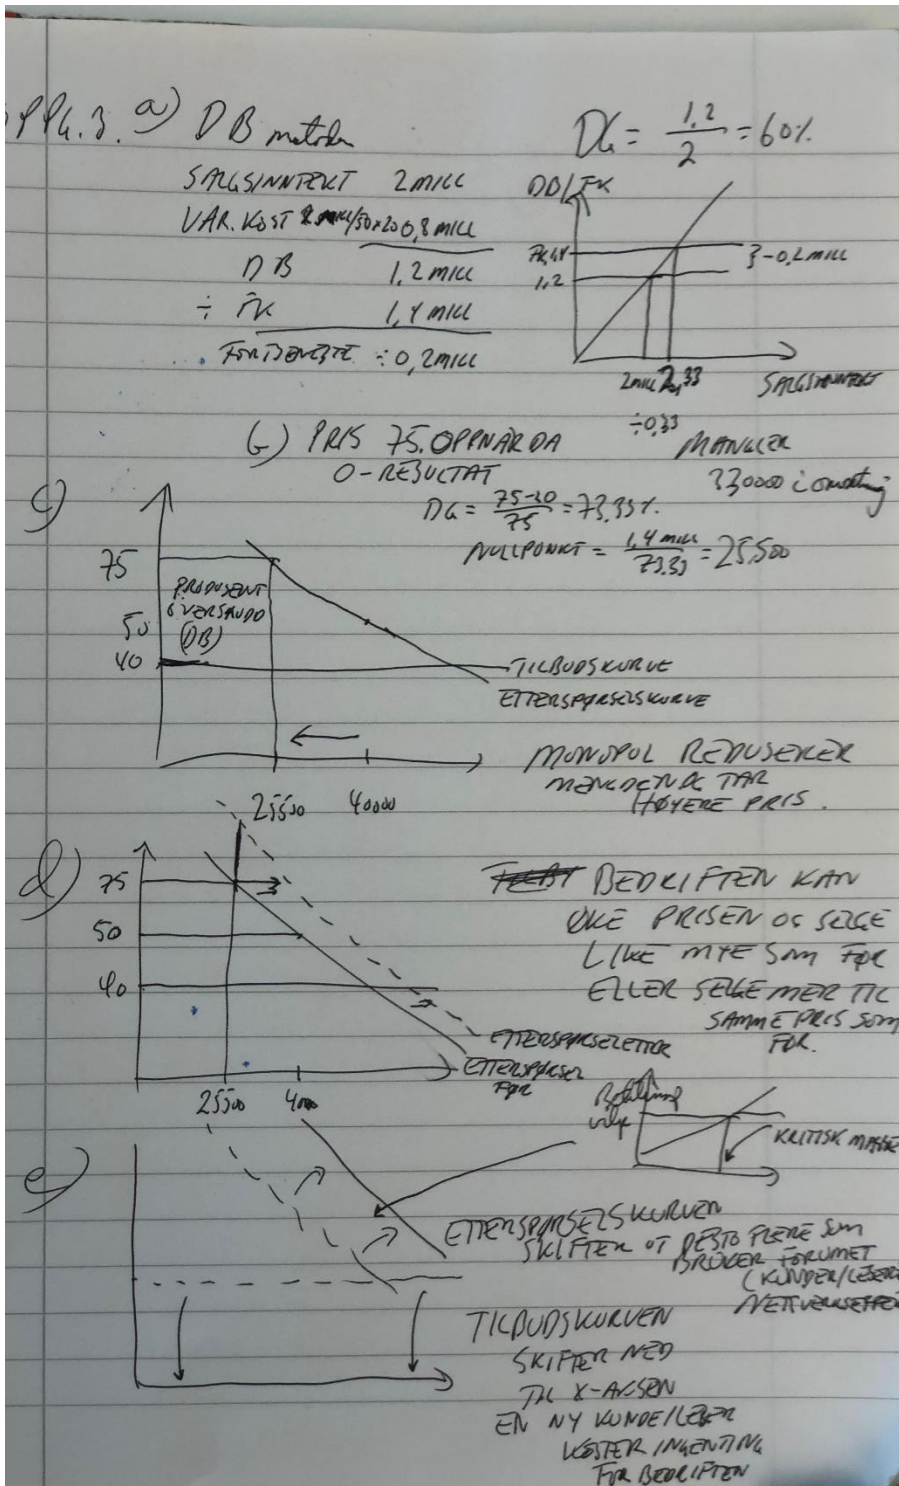 OPPG. 3. a) DB metoden
DG = 1,2 / 2 = 60%
SALGSINNTEKT 2 MILL
VAR. KOST 2 MILL/50x20 0,8 MILL
DB 1,2 MILL
÷ FK 1,4 MILL
FORTJENESTE ÷0,2 MILL
DB/FK
FK 1,4
1,2
} -0,2 MILL
2 MILL 2,33
SALGSINNTEKT
÷0,33
MANGLER
330000 i omsetning
b) PRIS 75. OPPNÅR DA
0-RESULTAT
DG = 75-20 / 75 = 73,33%.
NULLPUNKT = 1,4 MILL / 73,33 = 25500
c)
75
50
40
PRODUSENT
OVERSKUDD
(DB)
TILBUDSKURVE
ETTERSPØRSELSKURVE
25500 40000
MONOPOL REDUSERER
MENGDEN OG TAR
HØYERE PRIS.
d)
75
50
40
ETTERSPØRSEL ETTER
ETTERSPØRSEL
FØR
25500 4000
BEDRIFTEN KAN
ØKE PRISEN OG SELGE
LIKE MYE SOM FØR
ELLER SELGE MER TIL
SAMME PRIS SOM
FØR.
e)
Betalings
vilje
KRITISK MASSE
ETTERSPØRSELSKURVEN
SKIFTER UT DESTO FLERE SOM
BRUKER FORUMET
(KUNDER/LESERE
TILBUDSKURVEN
SKIFTER NED
TIL X-AKSEN
EN NY KUNDE/LESER
KOSTER INGENTING
FOR BEDRIFTEN